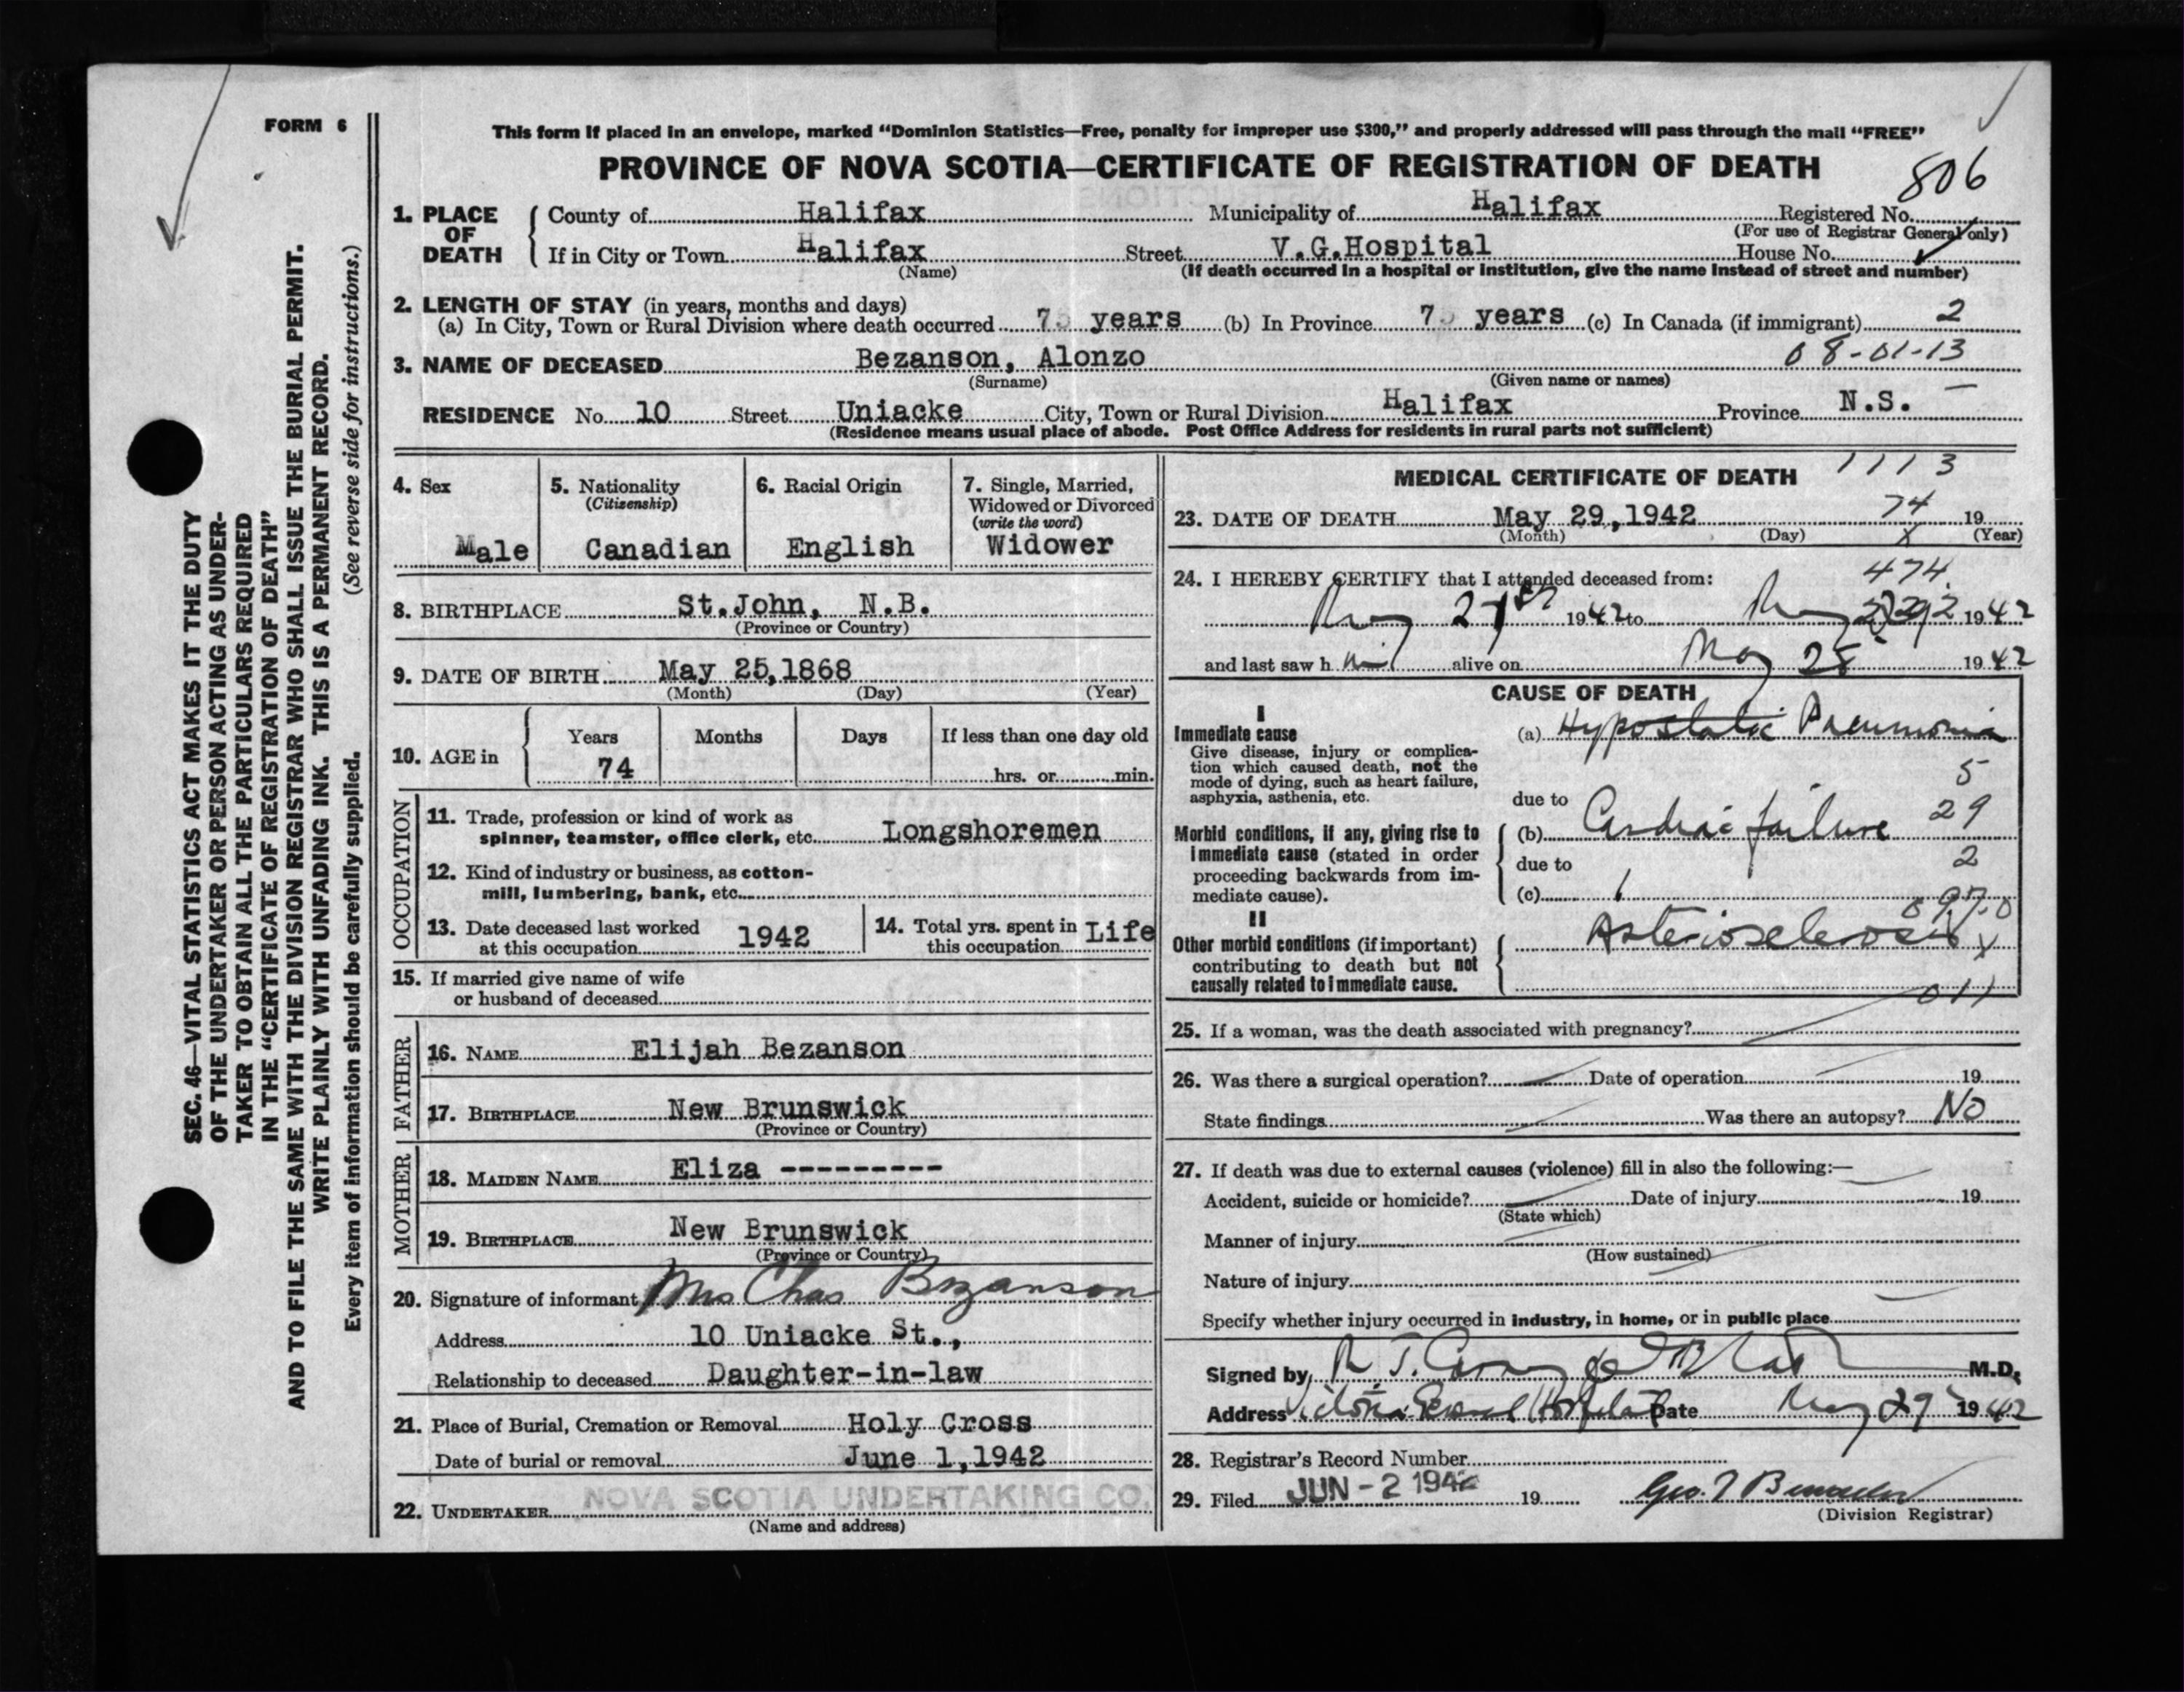 FORM 6
This form if placed in an envelope, marked “Dominion Statistics—Free, penalty for improper use $300,” and properly addressed will pass through the mail “FREE”
PROVINCE OF NOVA SCOTIA—CERTIFICATE OF REGISTRATION OF DEATH
806
1. PLACE OF DEATH { County of Halifax Municipality of Halifax Registered No.
(For use of Registrar General only)
If in City or Town Halifax Street V.G.Hospital House No.
(Name) (If death occurred in a hospital or institution, give the name instead of street and number)
2. LENGTH OF STAY (in years, months and days)
(a) In City, Town or Rural Division where death occurred 7 years (b) In Province 7 years (c) In Canada (if immigrant) 2
08-01-13
3. NAME OF DECEASED Bezanson, Alonzo
(Surname) (Given name or names)
RESIDENCE No. 10 Street Uniacke City, Town or Rural Division Halifax Province N.S.
(Residence means usual place of abode. Post Office Address for residents in rural parts not sufficient)
4. Sex
Male
5. Nationality
(Citizenship)
Canadian
6. Racial Origin
English
7. Single, Married,
Widowed or Divorced
(write the word)
Widower
8. BIRTHPLACE St.John, N.B.
(Province or Country)
9. DATE OF BIRTH May 25,1868
(Month) (Day) (Year)
10. AGE in { Years Months Days If less than one day old
74 hrs. or min.
OCCUPATION
11. Trade, profession or kind of work as
spinner, teamster, office clerk, etc. Longshoremen
12. Kind of industry or business, as cotton-
mill, lumbering, bank, etc.
13. Date deceased last worked
at this occupation 1942
14. Total yrs. spent in
this occupation Life
15. If married give name of wife
or husband of deceased
FATHER
16. NAME Elijah Bezanson
17. BIRTHPLACE New Brunswick
(Province or Country)
MOTHER
18. MAIDEN NAME Eliza ---------
19. BIRTHPLACE New Brunswick
(Province or Country)
20. Signature of informant Mrs Chas Bezanson
Address 10 Uniacke St.,
Relationship to deceased Daughter-in-law
21. Place of Burial, Cremation or Removal Holy Cross
Date of burial or removal June 1,1942
22. UNDERTAKER NOVA SCOTIA UNDERTAKING CO.
(Name and address)
MEDICAL CERTIFICATE OF DEATH 1113
74
23. DATE OF DEATH May 29,1942 19
(Month) (Day) (Year)
X
474
24. I HEREBY CERTIFY that I attended deceased from:
May 21st 1942 to May 1942
and last saw him alive on May 28 1942
CAUSE OF DEATH
I
Immediate cause
Give disease, injury or complica-
tion which caused death, not the
mode of dying, such as heart failure,
asphyxia, asthenia, etc.
(a) Hypostatic Pneumonia
5
due to
Morbid conditions, if any, giving rise to
immediate cause (stated in order
proceeding backwards from im-
mediate cause).
(b) Cardiac failure 29
due to 2
(c)
II
Other morbid conditions (if important)
contributing to death but not
causally related to immediate cause.
Arteriosclerosis
X
011
25. If a woman, was the death associated with pregnancy?
26. Was there a surgical operation? Date of operation 19
State findings Was there an autopsy? No
27. If death was due to external causes (violence) fill in also the following:—
Accident, suicide or homicide? Date of injury 19
(State which)
Manner of injury
(How sustained)
Nature of injury
Specify whether injury occurred in industry, in home, or in public place
Signed by M.D.
Address Victoria General Hospital Date May 29 1942
28. Registrar's Record Number
29. Filed JUN - 2 1942 19
(Division Registrar)
SEC. 46—VITAL STATISTICS ACT MAKES IT THE DUTY
OF THE UNDERTAKER OR PERSON ACTING AS UNDER-
TAKER TO OBTAIN ALL THE PARTICULARS REQUIRED
IN THE “CERTIFICATE OF REGISTRATION OF DEATH”
AND TO FILE THE SAME WITH THE DIVISION REGISTRAR WHO SHALL ISSUE THE BURIAL PERMIT.
WRITE PLAINLY WITH UNFADING INK. THIS IS A PERMANENT RECORD.
Every item of information should be carefully supplied. (See reverse side for instructions.)